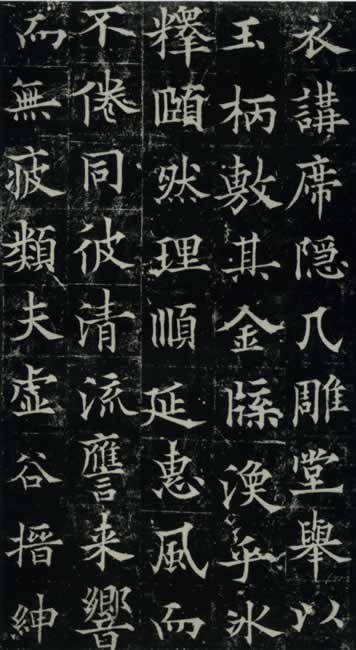 衣講席隐几雕堂舉以
玉柄敷其金牒渙乎冰
釋頤然理順延惠風而
不倦同彼清流譍来響
而無疲類夫虚谷搢紳